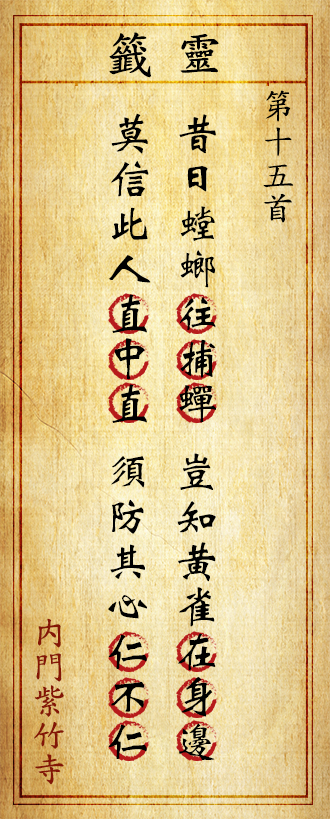 靈籤
第十五首
昔日螳螂往捕蟬 豈知黃雀在身邊
莫信此人直中直 須防其心仁不仁
內門紫竹寺